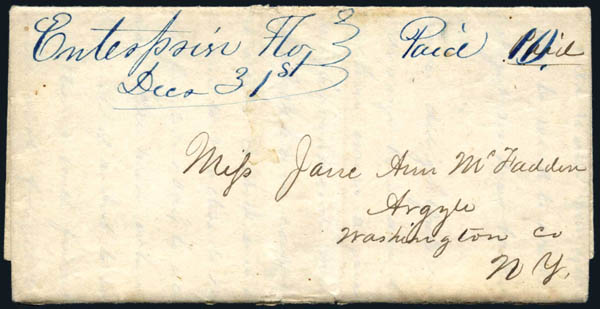 Enterprise Flo, Paid 10.
Paid
Decr 31st
Miss Jane Ann McFadden
Argyle
Washington Co
N Y.